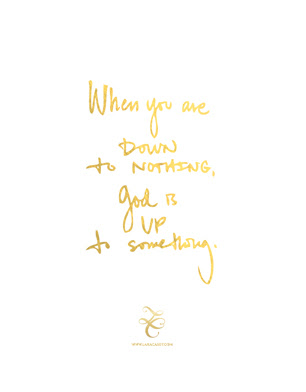 When you are
DOWN
to NOTHING,
God is
UP
to something.
WWW.LARACASEY.COM